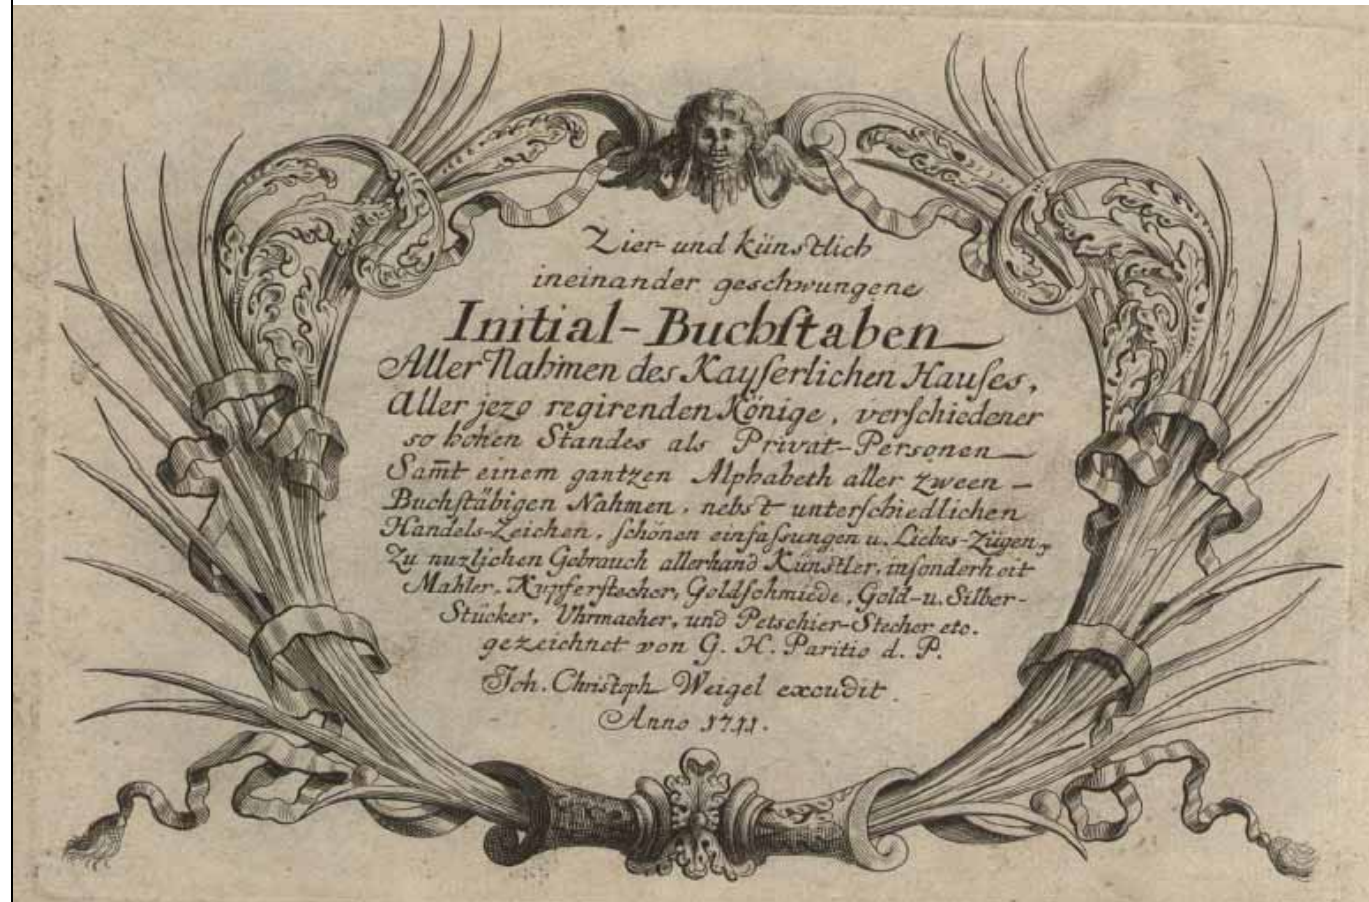 Zier- und künstlich
ineinander geschwungene
Initial-Buchſtaben
Aller Nahmen des Kayſerlichen Hauſes,
Aller jezo regirenden Könige, verſchiedener
so hohen Standes als Privat-Personen
Sam̅t einem gantzen Alphabeth aller zween-
Buchſtäbigen Nahmen, nebst unterſchiedlichen
Handels-Zeichen, ſchönen einfaſsungen u. Liebes-Zügen,
Zu nuzlichen Gebrauch allerhand Künstler, inſonderheit
Mahler, Kupferſtecher, Goldſchmiede, Gold-u. Silber-
Stücker, Uhrmacher, und Petschier-Stecher etc.
gezeichnet von G. H. Paritio d. P.
Joh. Christoph Weigel excudit.
Anno 1711.